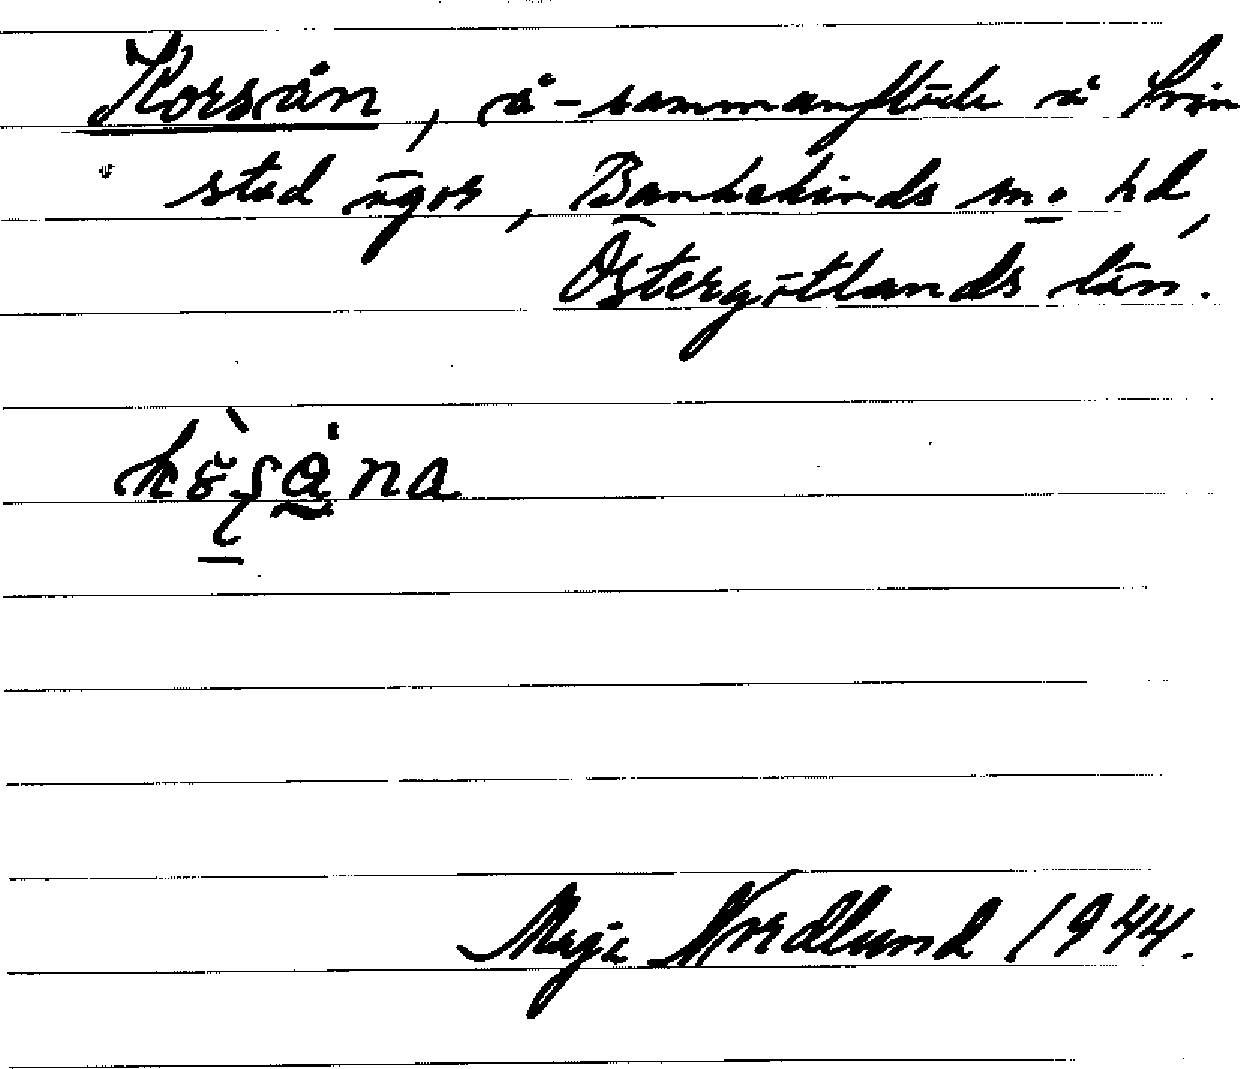 Korsån, å-sammanflöde å Svin
stad ägor, Bankekinds sn. hd,
Östergötlands län.
Maja Nordlund 1944.